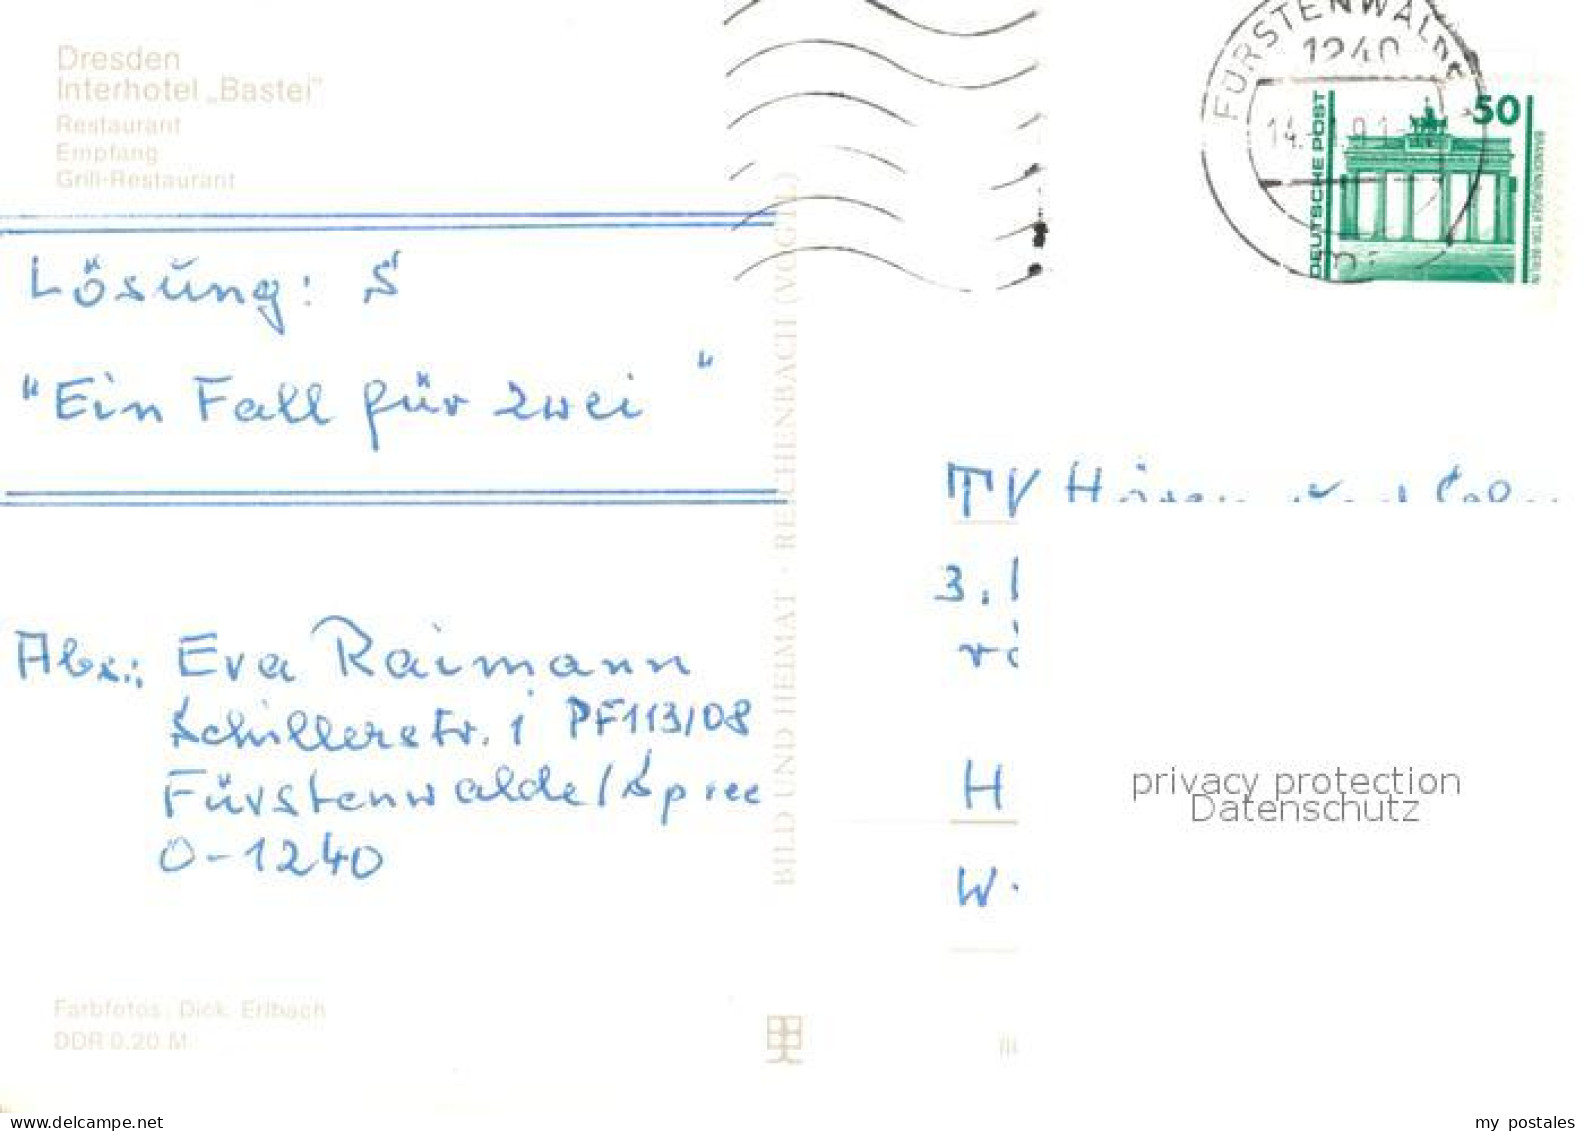 Dresden
Interhotel „Bastei"
Restaurant
Empfang
Grill-Restaurant
Lösung: S
"Ein Fall für zwei"
Abs.: Eva Raimann
Schillerstr. 1 PF113/08
Fürstenwalde/Spree
O-1240
Farbfotos: Dick, Erlbach
DDR 0,20 M
BILD UND HEIMAT · REICHENBACH (VOGTL)
FÜRSTENWALDE
1240
DEUTSCHE POST
50
BRANDENBURGER TOR · BERLIN
TV Hören und
3.
H
W
privacy protection
Datenschutz
www.delcampe.net
my_postales